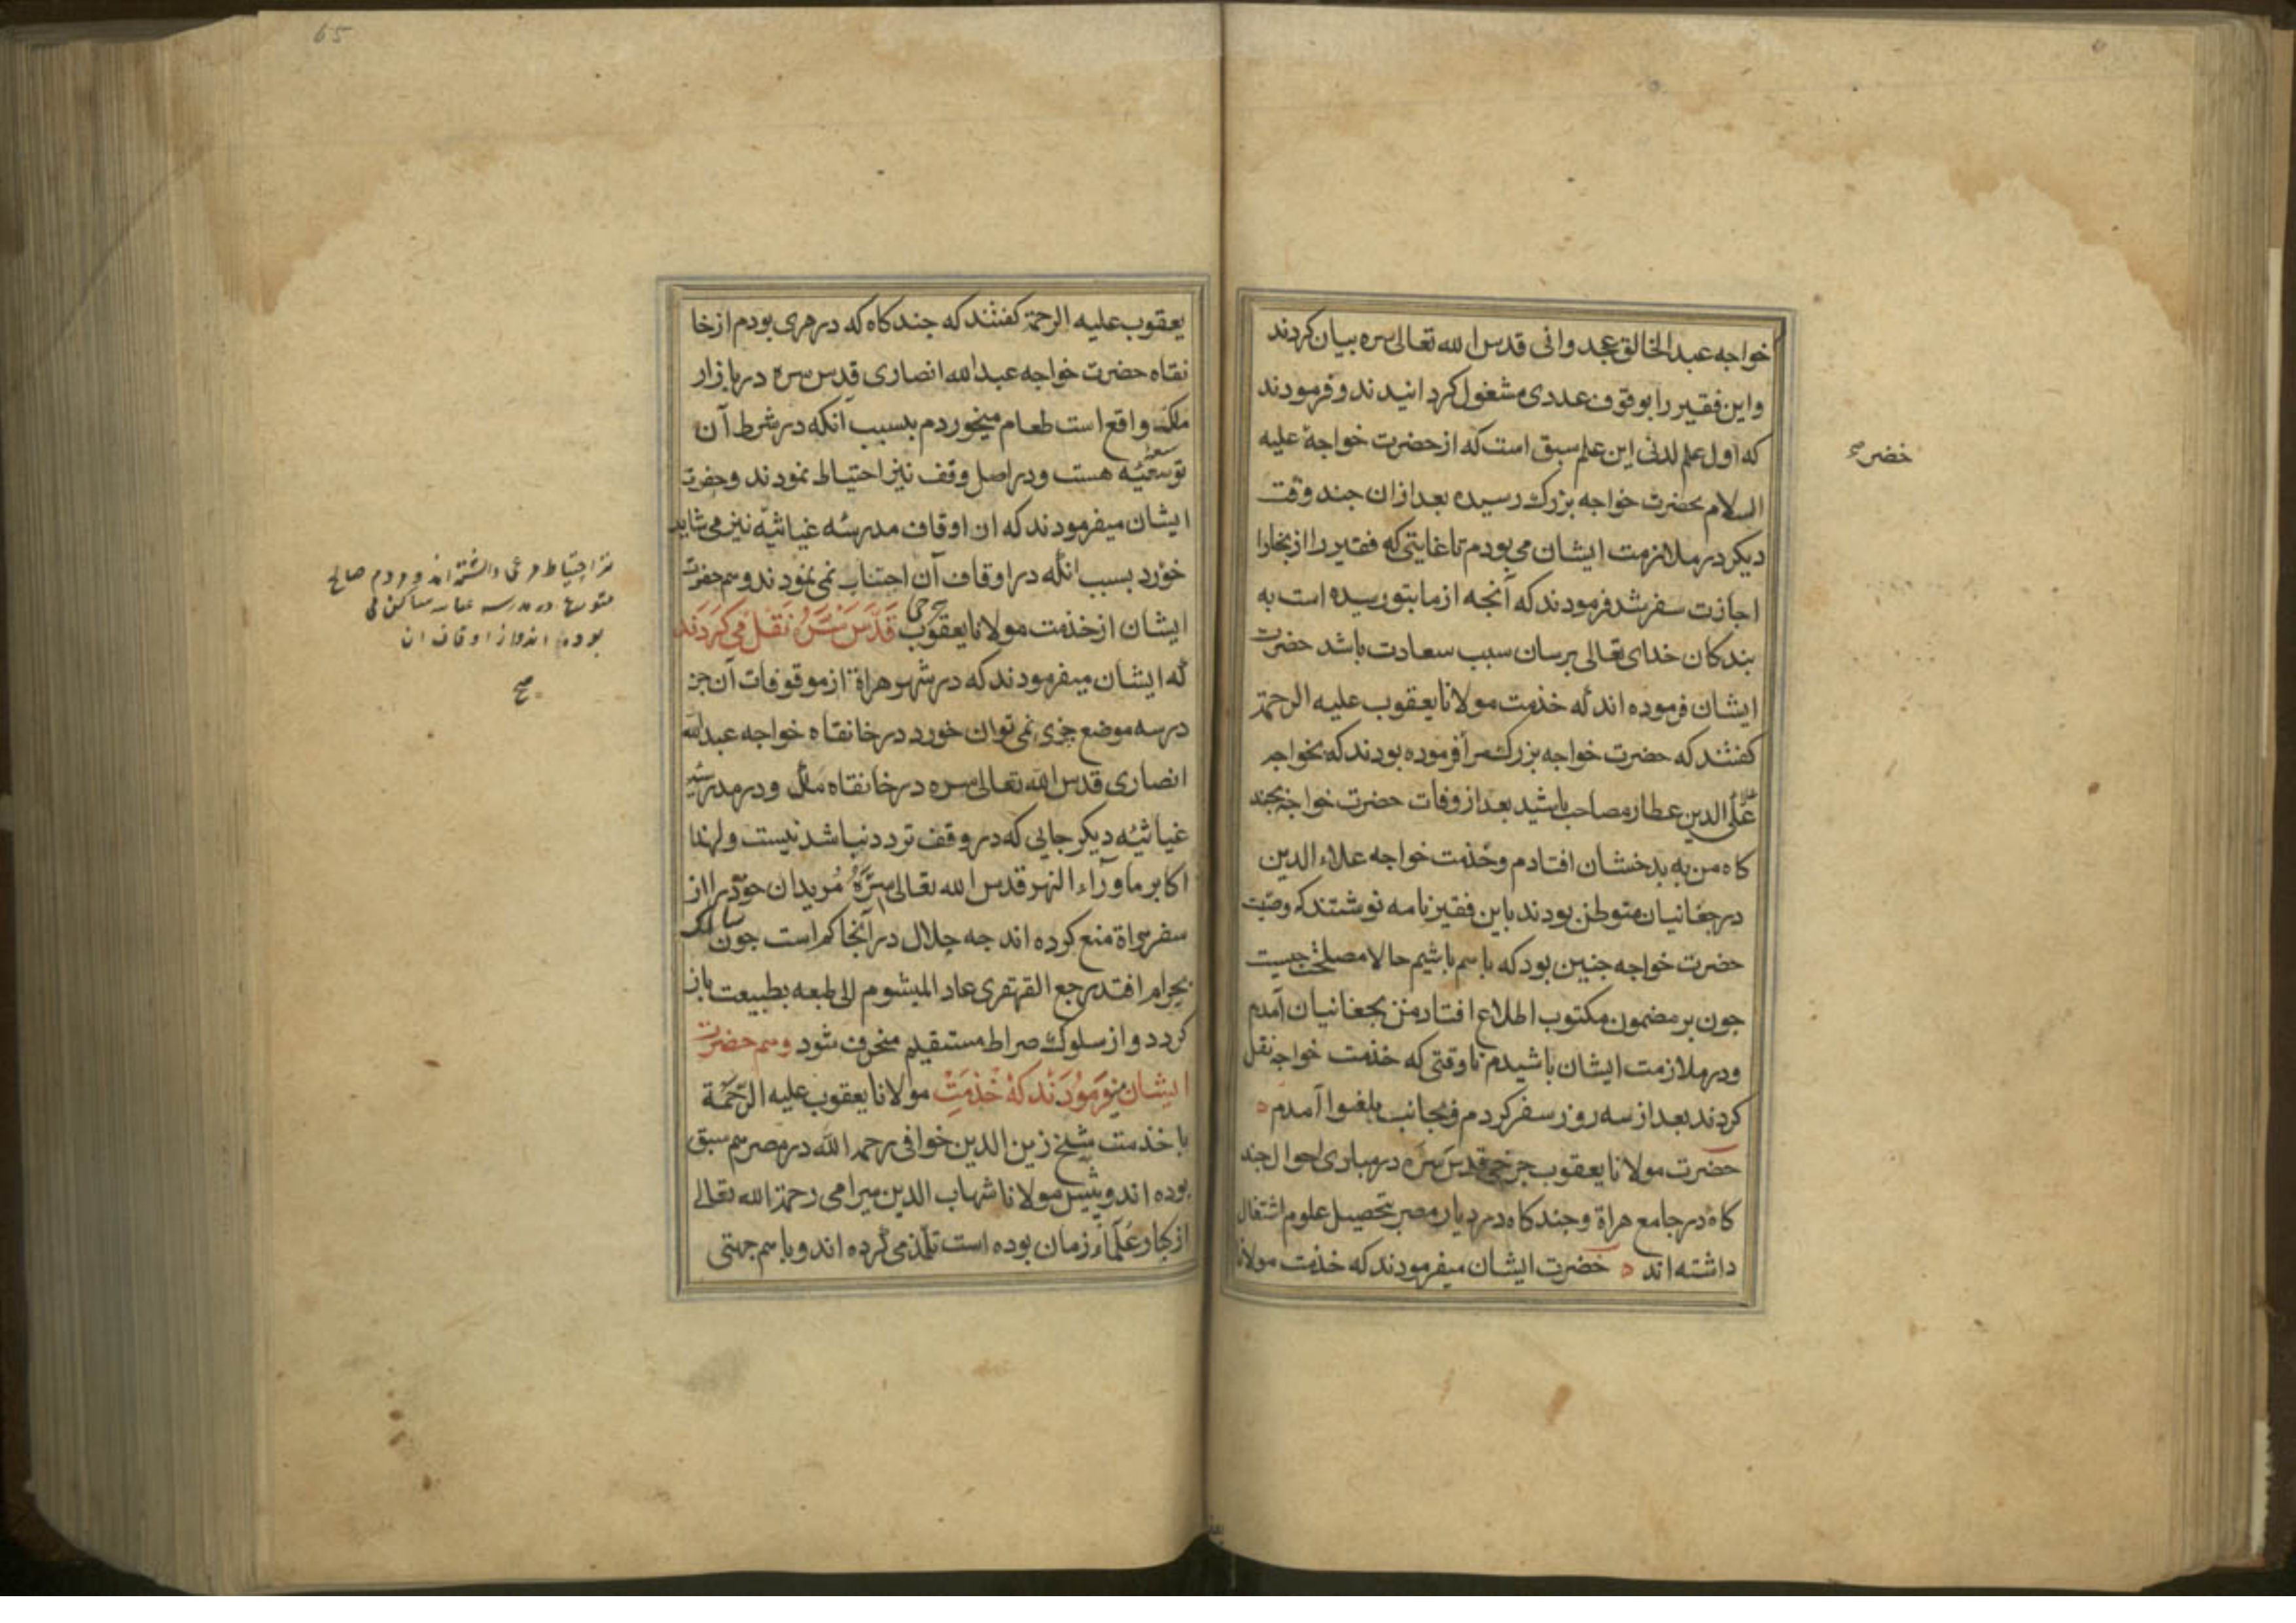 خواجه عبد الخالق غجدوانی قدس الله تعالی سره بیان کردند
واین فقیر را بوقوف عددی مشغول کردانیدند و فرمودند
که اول علم لدنی این علم سبق است که از حضرت خواجهٔ علیه
السلام بحضرت خواجه بزرك رسیده بعد ازان جند وقت
دیکر در ملازمت ایشان می بودم تا غایتی که فقیر را از بخارا
اجازت سفر شد فرمودند که آنجه از ما بتو رسیده است به
بندکان خدای تعالی برسان سبب سعادت باشد حضرت
ایشان فرموده اند که خذمت مولانا یعقوب علیه الرحمة
کفتند که حضرت خواجه بزرك مرا فرموده بودند که بخواجه
علاء الدین عطار مصاحب باشید بعد از وفات حضرت خواجه جند
کاه من به بدخشان افتادم وخذمت خواجه علاء الدین
در جغانیان متوطن بودند باین فقیر نامه نوشتند که وصیت
حضرت خواجه جنین بود که باهم باشیم حالا مصلحت جیست
جون بر مضمون مکتوب اطلاع افتاد من بجغانیان آمدم
ودر ملازمت ایشان باشیدم تا وقتی که خذمت خواجه نقل
کردند بعد از سه روز سفر کردم و بجانب بلغنوا آمدم
حضرت مولانا یعقوب جرخی قدس سره در مبادی احوال جند
کاه در جامع هراة وجند کاه در دیار مصر بتحصیل علوم اشتغال
داشته اند حضرت ایشان میفرمودند که خذمت مولانا
خضر صح
65
یعقوب علیه الرحمة کفتند که جند کاه که در هری بودم از خا
نقاه حضرت خواجه عبد الله انصاری قدس سره در بازار
ملک واقع است طعام میخوردم بسبب آنکه در شرط آن
توسعه هست ودر اصل وقف نیز احتیاط نمودند وحضرت
ایشان میفرمودند که ان اوقاف مدرسه غیاثیه نیز می شاید
خورد بسبب انکه در اوقاف آن اجتناب نمی نمودند وهم حضرت
ایشان از خذمت مولانا یعقوب جرخی قدس سره نقل می کردند
که ایشان میفرمودند که در شهر هراة از موقوفات آن جز
در سه موضع جزی نمی توان خورد در خانقاه خواجه عبد الله
انصاری قدس الله تعالی سره در خانقاه ملک ودر مدرسه
غیاثیه دیکر جایی که در وقف تردد نباشد نیست ولهذا
اکابر ماوراء النهر قدس الله تعالی سره مریدان خود را از
سفر هراة منع کرده اند جه حلال در آنجا کم است جون سالک
بحرام افتد رجع القهقری عاد المیشوم الی طبعه بطبیعت باز
کردد و از سلوك صراط مستقیم منحرف شود وهم حضرت
ایشان میفرمودند که خذمت مولانا یعقوب علیه الرحمة
با خذمت شیخ زین الدین خوافی رحمه الله در مصر هم سبق
بوده اند و پیش مولانا شهاب الدین سیرامی رحمة الله تعالی
از کبار علماء زمان بوده است تلمذ می کرده اند و با هم جهتی
احتیاط مرعی داشته اند و مردم صالح
در مدرسه ساکن می
بوده اند و از اوقاف ان
صح